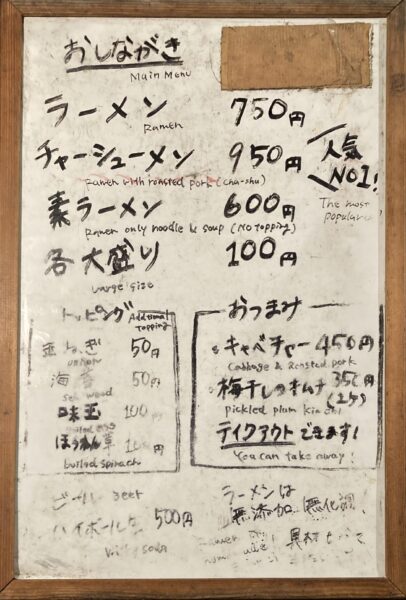 おしながき
Main Menu
ラーメン 750円
Ramen
チャーシューメン 950円
Ramen with roasted pork (cha-shu)
人気
No1!
The most
popular
素ラーメン 600円
Ramen only noodle & soup (No topping)
各大盛り 100円
Large size
トッピング Additional
topping
玉ねぎ 50円
onion
海苔 50円
sea weed
味玉 100円
boiled egg
ほうれん草 100円
boiled spinach
おつまみ
キャベチャー 450円
Cabbage & Roasted pork
梅干し 350円
pickled plum
テイクアウトできます!
You can take away!
ビール Beer
ハイボール 500円
soda
ラーメンは
無添加 無化調